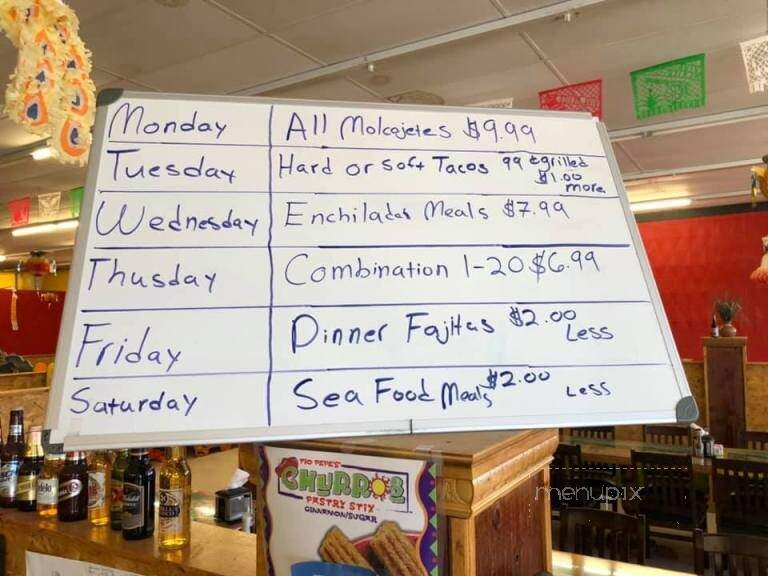 Monday All Molcajetes $9.99
Tuesday Hard or Soft Tacos 99 ¢ grilled
$1.00
more
Wednesday Enchiladas Meals $7.99
Thusday Combination 1-20 $6.99
Friday Dinner Fajitas $2.00
Less
Saturday Sea Food Meals $2.00 Less
TIO PEPE'S
CHURROS
PASTRY STIX
CINNAMON/SUGAR
menupix